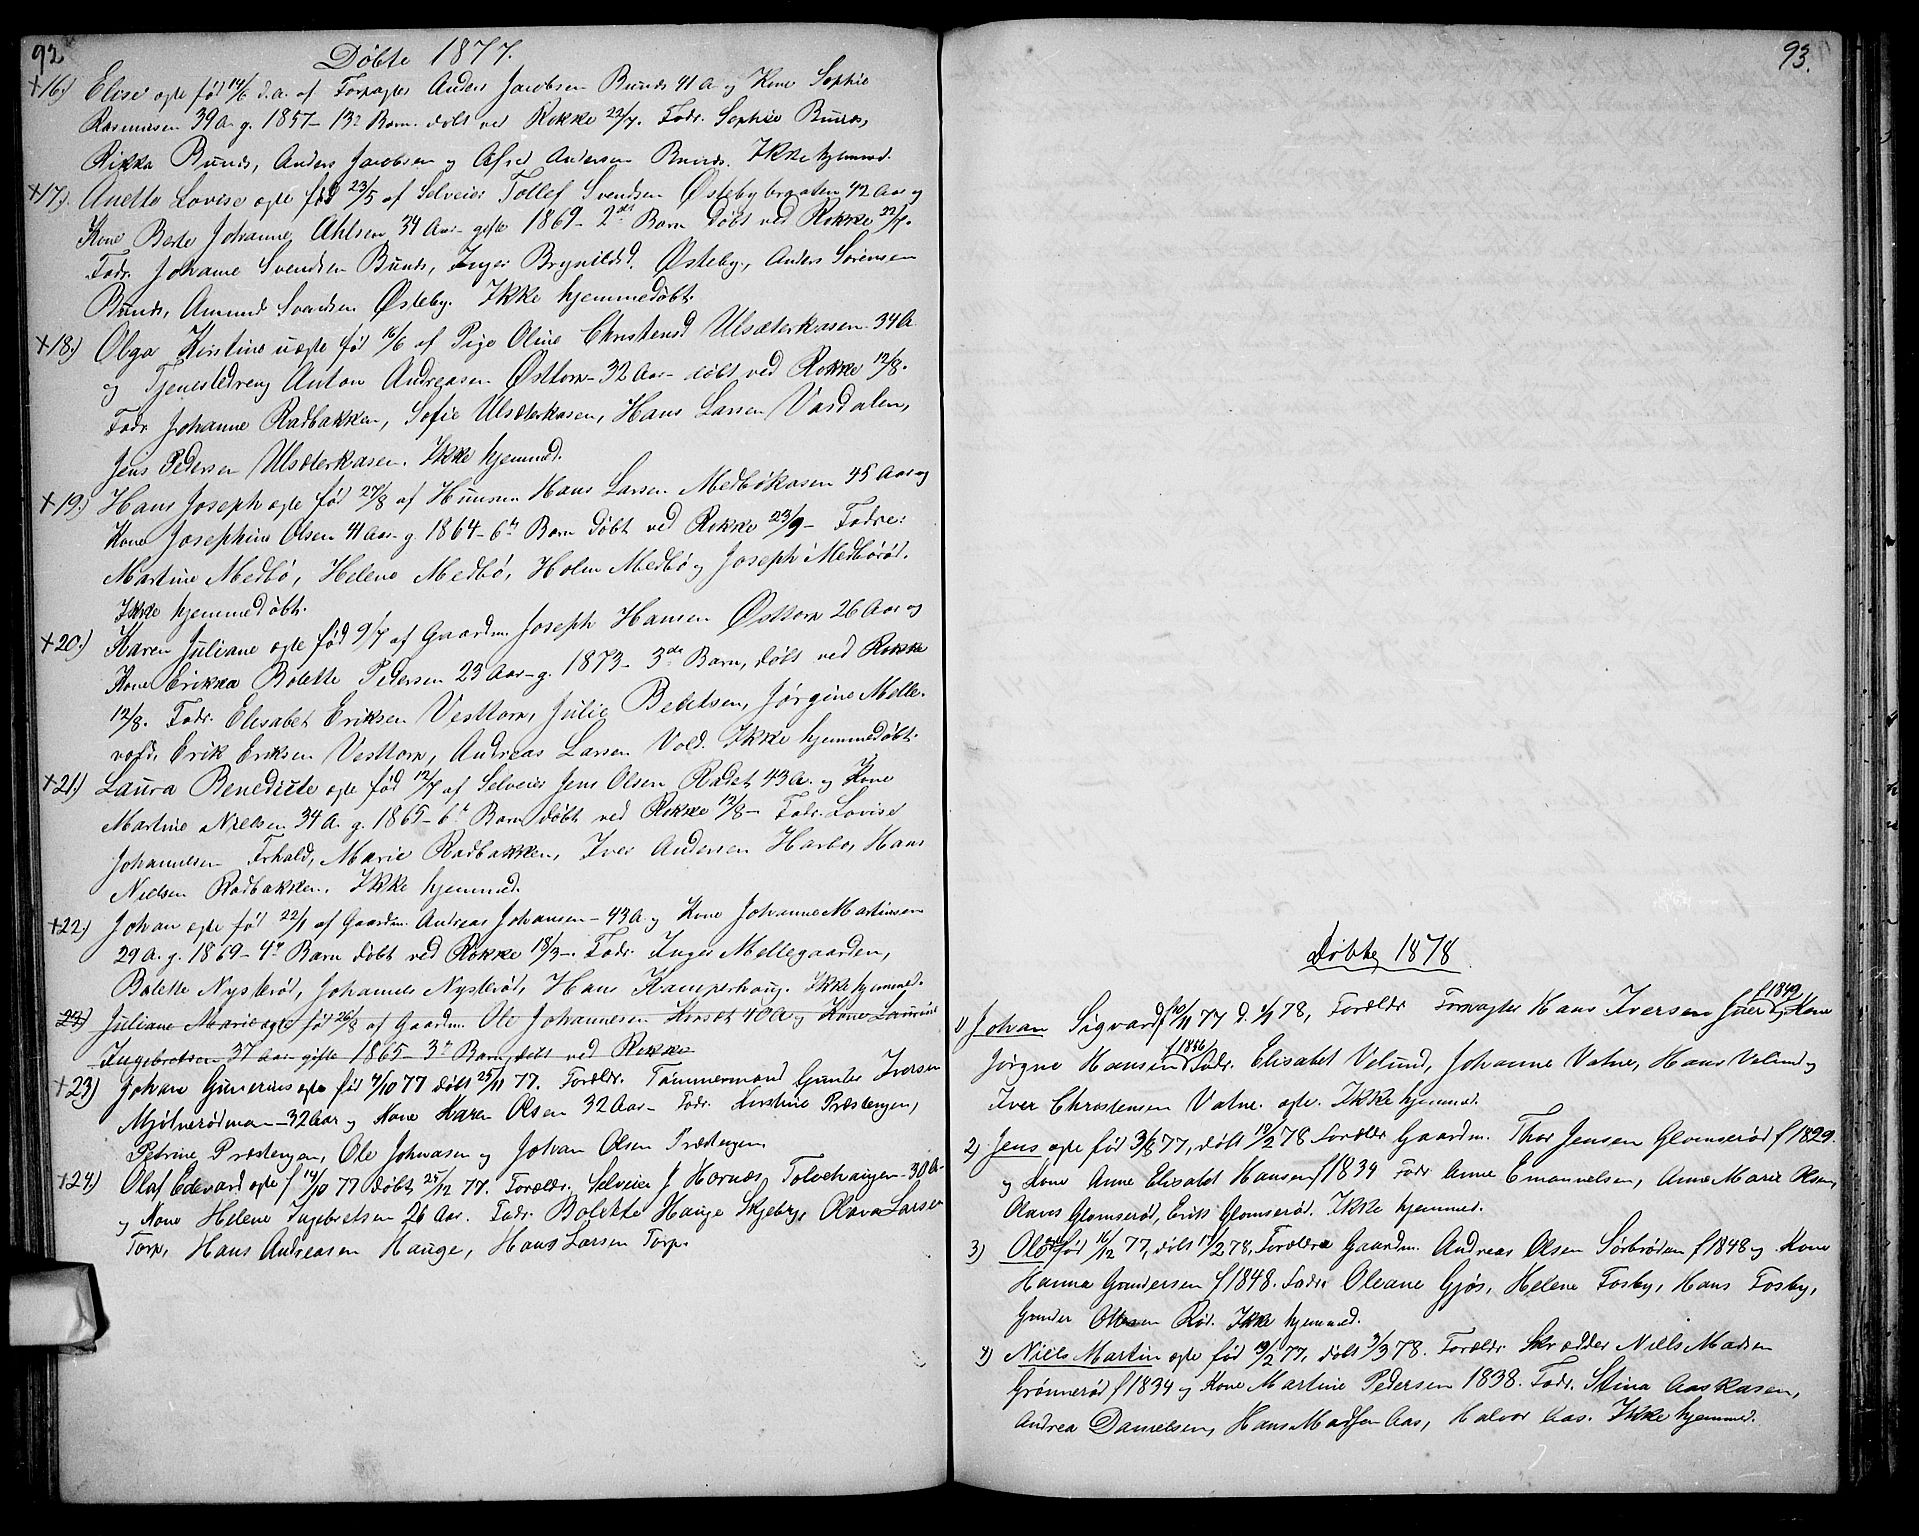 92
Døbte 1877.
+16.) Elise egte fød 14/6 d.a. af Forpagter Anders Jacobsen Bunds 41 A og Kone Sophie
Rasmusen 39 A. g. 1857 - 13de Barn. døbt ved Rokke 22/7. Fadr. Sophie Bunds,
Rikka Bunds, Anders Jacobsen og Alfred Andersen Bunds. Ikke hjemmed.
+17.) Anette Lovise egte fød 23/5 af Selveier Tollef Svendsen Østebybraaten 42 Aar og
Kone Berte Johanne Ahlsen 34 Aar - gifte 1869 - 2det Barn døbt ved Rokke 22/7.
Fadr. Johanne Svendsen Bunds, Inger Brynildsd. Østeby, Anders Sørensen
Bunds, Amund Svendsen Østeby. Ikke hjemmedøbt.
+18.) Olga Kirstine uegte fød 16/6 af Pige Oline Christensd Ulsæterkasen 34 A
og Tjenestedreng Anton Andreasen Østtorn - 32 Aar - døbt ved Rokke 12/8.
Fadr. Johanne Radbakken, Sofie Ulsæterkasen, Hans Larsen Vardalen,
Jens Pedersen Ulsæterkasen. Ikke hjemmed.
+19.) Hans Joseph egte fød 27/8 af Huusm Hans Larsen Medbøkasen 45 Aar og
Kone Josephine Olsen 41 Aar - g. 1864 - 6te Barn døbt ved Rokke 23/9 - Fadre:
Martine Medbø, Helene Medbø, Holm Medbø og Joseph Medbørød.
Ikke hjemmedøbt.
+20.) Karen Juliane egte fød 9/7 af Gaardm. Joseph Hansen Østtorn 26 Aar og
Kone Erikka Bolette Pedersen 23 Aar - g. 1873 - 3de Barn, døbt ved Rokke
12/8. Fadr. Elisabet Eriksen Vesttorn, Julie Beletsen, Jørgine Melle-
vold, Erik Eriksen Vesttorn, Andreas Larsen Vold. Ikke hjemmedøbt.
+21.) Laura Benedicte egte fød 12/7 af Selveier Jens Olsen Radet 43 A. og Kone
Martine Nielsen 34 A. g. 1865 - 6te Barn døbt ved Rokke 12/8 - Fadr. Lovise
Johannesen Erhold, Marie Radbakken, Iver Andersen Harbo, Hans
Nielsen Radbakken. Ikke hjemmed.
+22.) Johan egte fød 22/1 af Gaardm. Andreas Johansen - 43 A. og Kone Johanne Martinsen
29 A. g. 1869 - 4de Barn døbt ved Rokke 18/3 -. Fadr. Inger Mellegaarden,
Bolette Nysterød, Johannes Nysterød, Hans Kamperhaug. Ikke hjemmed.
24.) Juliane Marie egte fød 26/8 af Gaardm. Ole Johannesen Korsæt 40 A og Kone Laurine
Ingebretsen 37 Aar gifte 1865 - 3de Barn døbt ved Rokke
+23) Johan Gunerius egte fød 4/10 77 døbt 25/11 77. Forældr. Tømmermand Gunder Iversen
Mjølnerødmoen - 32 Aar og Kone Karen Olsen 32 Aar - Fadr. Kirstine Præstengen,
Petrine Præstengen, Ole Johnasen og Johan Olsen Præstengen.
+24.) Olaf Edevard egte f 14/10 77 døbt 25/12 77. Forældr. Selveier J. Hornæs, Tolvehaugen - 30 A-
og Kone Helene Ingebretsen 26 Aar. Fadr. Bolette Hauge Skjeberg, Olava Larsen
Torp, Hans Andreasen Hauge, Hans Larsen Torp.
93.
Døbte 1878.
1) Johan Sigvard f 20/11 77 d. 1/1 78, Forældr. Forpagter Hans Iversen f 1849, og Kone
Jørgne Hansen f 1846 Fadr. Elisabet Velund, Johanne Vatne, Hans Velund og
Iver Christensen Vatne. egte. Ikke hjemmed.
2) Jens egte fød 3/8 77, døbt 10/2 78 Forældr Gaardm. Thor Jensen Glomserød f 1829.
og Kone Anne Elisabet Hansen f 1834 Fadr Anne Emanuelsen, Anne Marie Olsen,
Olaves Glomserød, Erik Glomserød. Ikke hjemmed.
3) Ole egte fød 16/12 77, døbt 17/2 78, Forældre Gaardm. Andreas Olsen Sørbrøden f 1848 og Kone
Hanna Gundersen f 1848. Fadr. Oleane Gjøs, Helene Fosby, Hans Fosby,
Gunder Ottesen Rød. Ikke hjemmed.
4) Niels Martin egte fød 19/2 77, døbt 3/3 78. Forældr. Skrædder Niels Madsen
Grønnerød f 1834 og Kone Martine Pedersen 1838. Fadr. Stina Aaskasen,
Andrea Danielsen, Hans Madsen Aas, Halvor Aas. Ikke hjemmed.